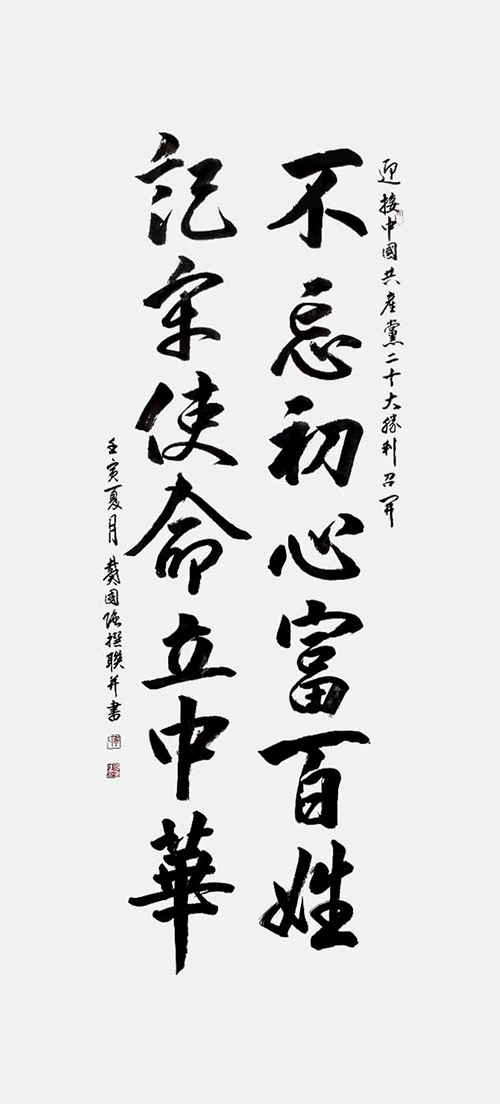 迎接中國共產黨二十大勝利召開
不忘初心富百姓
記牢使命立中華
壬寅夏月 戴國強撰聯并書